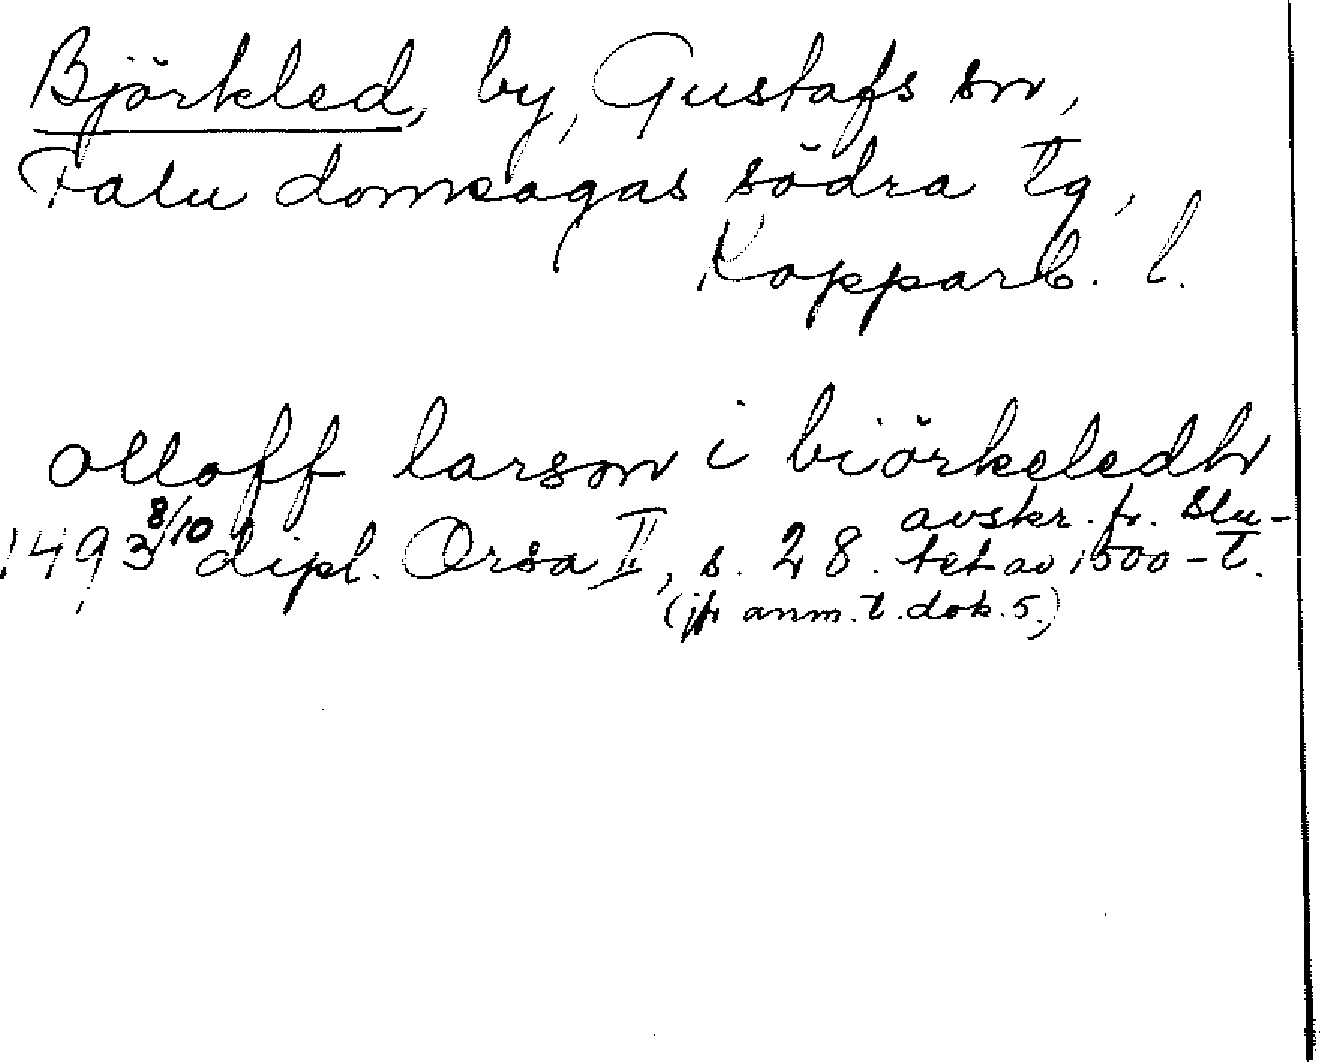 Björkled, by, Gustafs sn,
Falu domsagas södra tg,
Kopparb. l.
olloff larson i biörkeledh
1493 8/10 dipl. Orsa II, s. 28. avskr. fr. slu-
tet av 1500-t.
(jfr anm. t. dok. 5.)